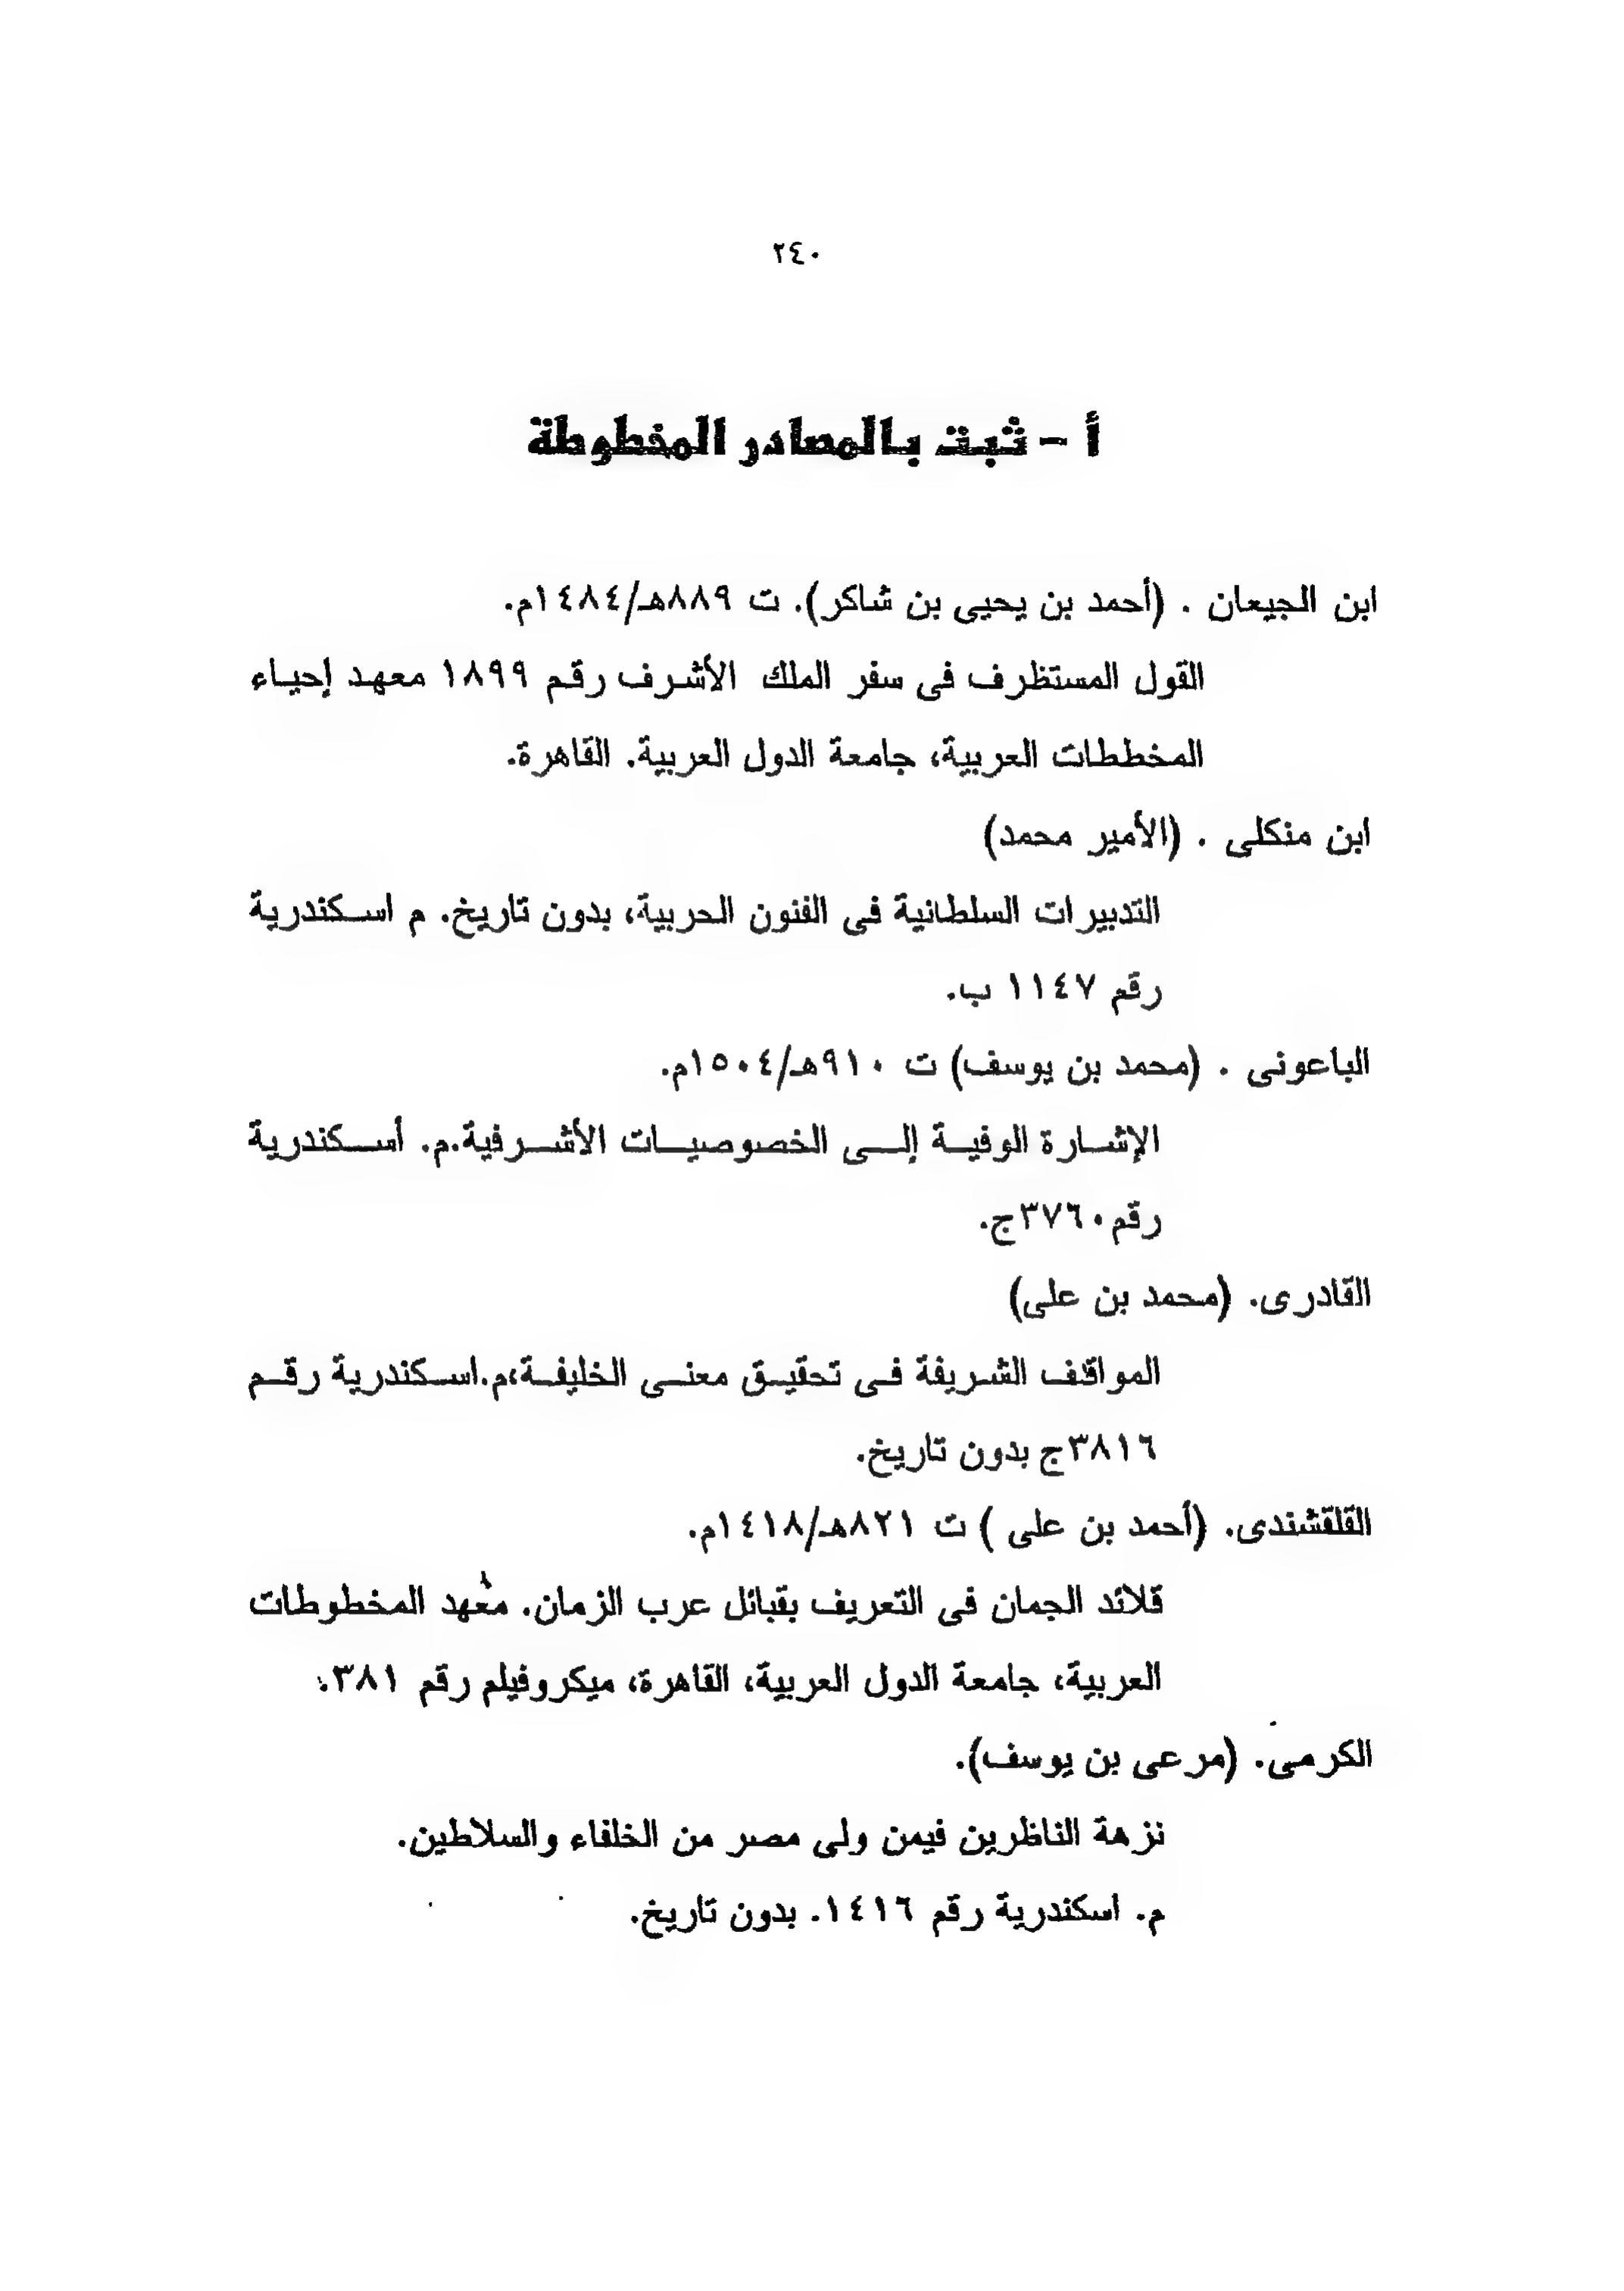 ٢٤٠
أ - ثبت بالمصادر المخطوطة
ابن الجيعان . (أحمد بن يحيى بن شاكر). ت ٨٨٩هـ/١٤٨٤م.
القول المستظرف فى سفر الملك الأشرف رقم ١٨٩٩ معهد إحياء
المخططات العربية، جامعة الدول العربية. القاهرة.
ابن منكلى . (الأمير محمد)
التدبيرات السلطانية فى الفنون الحربية، بدون تاريخ. م اسكندرية
رقم ١١٤٧ ب.
الباعونى . (محمد بن يوسف) ت ٩١٠هـ/١٥٠٤م.
الإشارة الوفية إلى الخصوصيات الأشرفية.م. أسكندرية
رقم٣٧٦٠ج.
القادرى. (محمد بن على)
المواقف الشريفة فى تحقيق معنى الخليفة،م.اسكندرية رقم
٣٨١٦ج بدون تاريخ.
القلقشندى. (أحمد بن على ) ت ٨٢١هـ/١٤١٨م.
قلائد الجمان فى التعريف بقبائل عرب الزمان. معهد المخطوطات
العربية، جامعة الدول العربية، القاهرة، ميكروفيلم رقم ٣٨١.
الكرمى. (مرعى بن يوسف).
نزهة الناظرين فيمن ولى مصر من الخلفاء والسلاطين.
م. اسكندرية رقم ١٤١٦. بدون تاريخ.